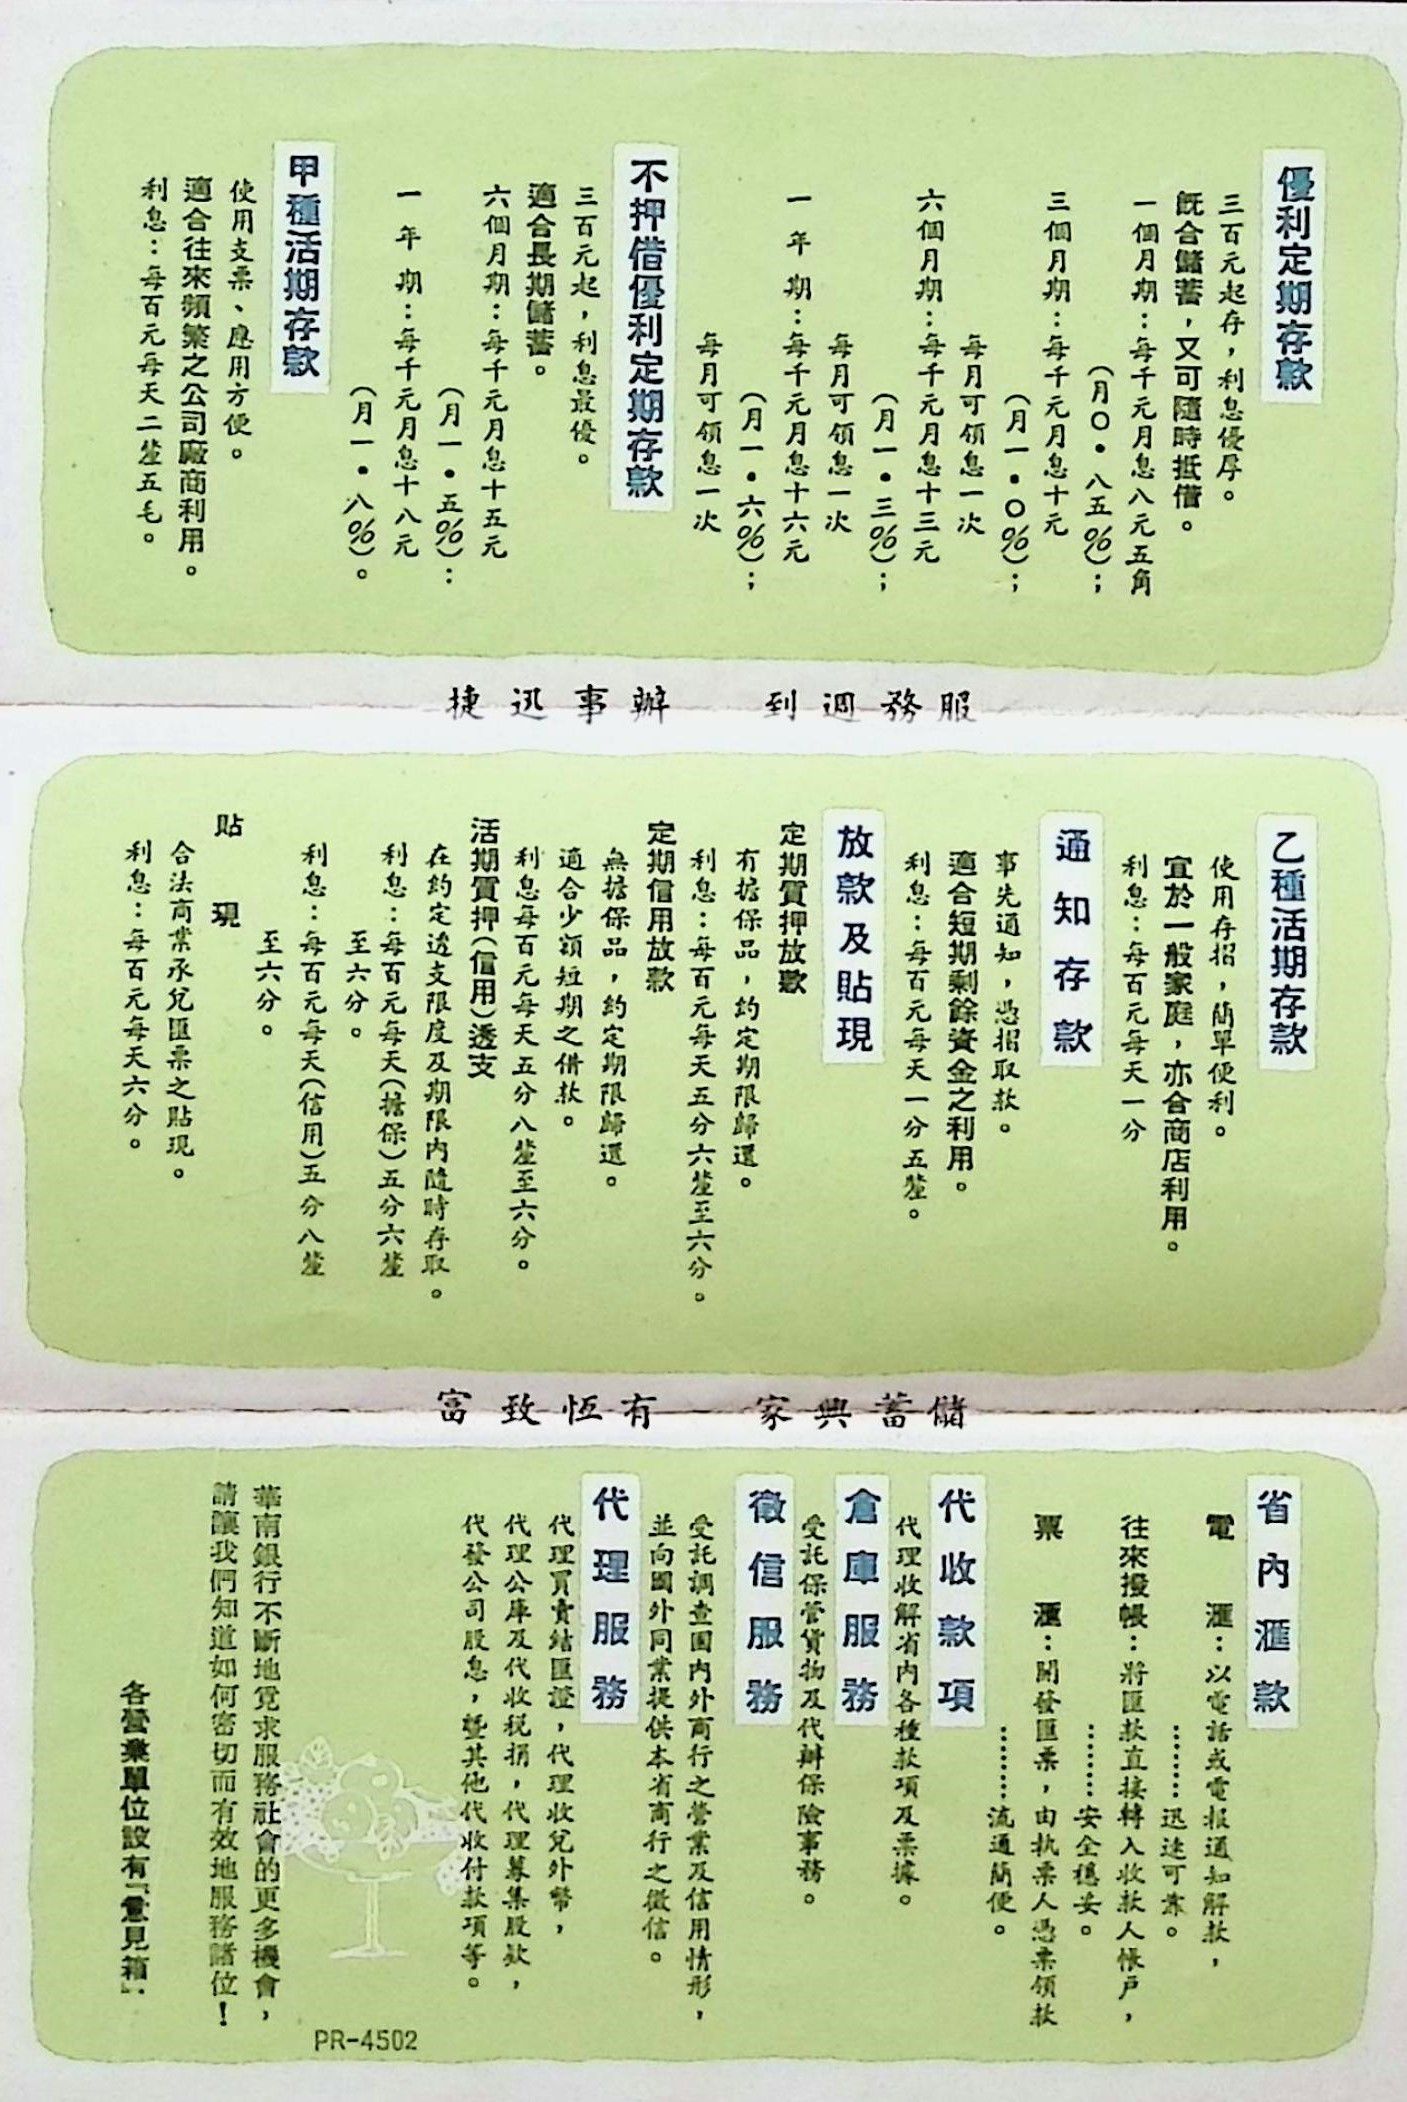 優利定期存款
三百元起存，利息優厚。
既合儲蓄，又可隨時抵借。
一個月期：每千元月息八元五角
（月〇・八五％）；
三個月期：每千元月息十元
（月一・〇％）；
每月可領息一次
六個月期：每千元月息十三元
（月一・三％）；
每月可領息一次
一年期：每千元月息十六元
（月一・六％）；
每月可領息一次
不押借優利定期存款
三百元起，利息最優。
適合長期儲蓄。
六個月期：每千元月息十五元
（月一・五％）：
一年期：每千元月息十八元
（月一・八％）。
甲種活期存款
使用支票、應用方便。
適合往來頻繁之公司廠商利用。
利息：每百元每天二釐五毛。
服務週到　辦事迅捷
乙種活期存款
使用存摺，簡單便利。
宜於一般家庭，亦合商店利用。
利息：每百元每天一分
通知存款
事先通知，憑摺取款。
適合短期剩餘資金之利用。
利息：每百元每天一分五釐。
放款及貼現
定期質押放款
有擔保品，約定期限歸還。
利息：每百元每天五分六釐至六分。
定期信用放款
無擔保品，約定期限歸還。
適合少額短期之借款。
利息每百元每天五分八釐至六分。
活期質押（信用）透支
在約定透支限度及期限內隨時存取。
利息：每百元每天（擔保）五分六釐
至六分。
利息：每百元每天（信用）五分八釐
至六分。
貼現
合法商業承兌匯票之貼現。
利息：每百元每天六分。
儲蓄興家　有恆致富
省內滙款
電滙：以電話或電報通知解款，
………迅速可靠。
往來撥帳：將匯款直接轉入收款人帳戶，
………安全穩妥。
票滙：開發匯票，由執票人憑票領款
………流通簡便。
代收款項
代理收解省內各種款項及票據。
倉庫服務
受託保管貨物及代辦保險事務。
徵信服務
受託調查國內外商行之營業及信用情形，
並向國外同業提供本省商行之徵信。
代理服務
代理買賣結匯證，代理收兌外幣，
代理公庫及代收稅捐，代理募集股款，
代發公司股息，暨其他代收付款項等。
華南銀行不斷地覓求服務社會的更多機會，
請讓我們知道如何密切而有效地服務諸位！
各營業單位設有「意見箱」.
PR-4502